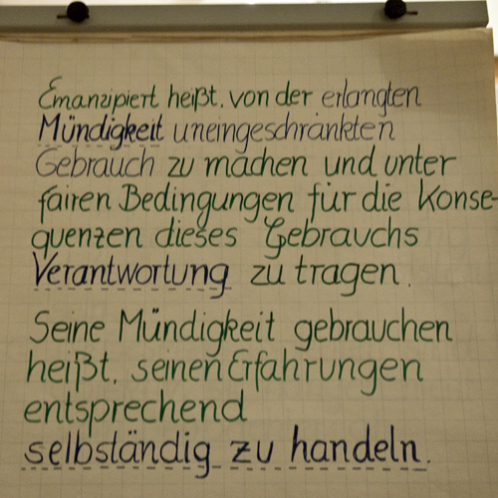 Emanzipiert heißt, von der erlangten
Mündigkeit uneingeschränkten
Gebrauch zu machen und unter
fairen Bedingungen für die Konse-
quenzen dieses Gebrauchs
Verantwortung zu tragen.
Seine Mündigkeit gebrauchen
heißt, seinen Erfahrungen
entsprechend
selbständig zu handeln.